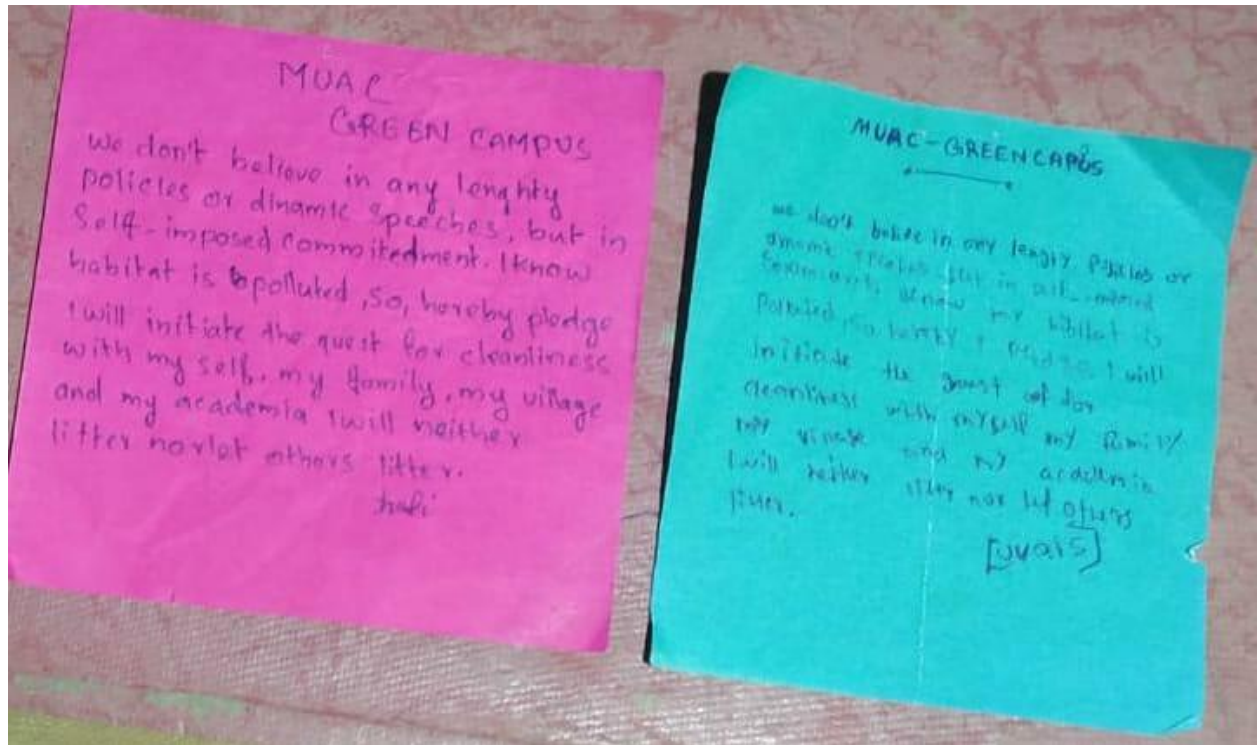 MUAC
GREEN CAMPUS
we don't believe in any lenghty
policies or dinamic speeches, but in
Self-imposed commitedment. I know
habitat is polluted, so, hereby pledge
I will initiate the quest for cleanliness
with my self, my family, my village
and my academia I will neither
litter nor let others litter.
MUAC-GREENCAPUS
we don't belive in any lengty policies or
in self
my habitat is
polluted, so, I will
initiate the quest of for
cleanliness with myself my family
my village and my academia
I will neither litter nor let others
litter.
[uvais]